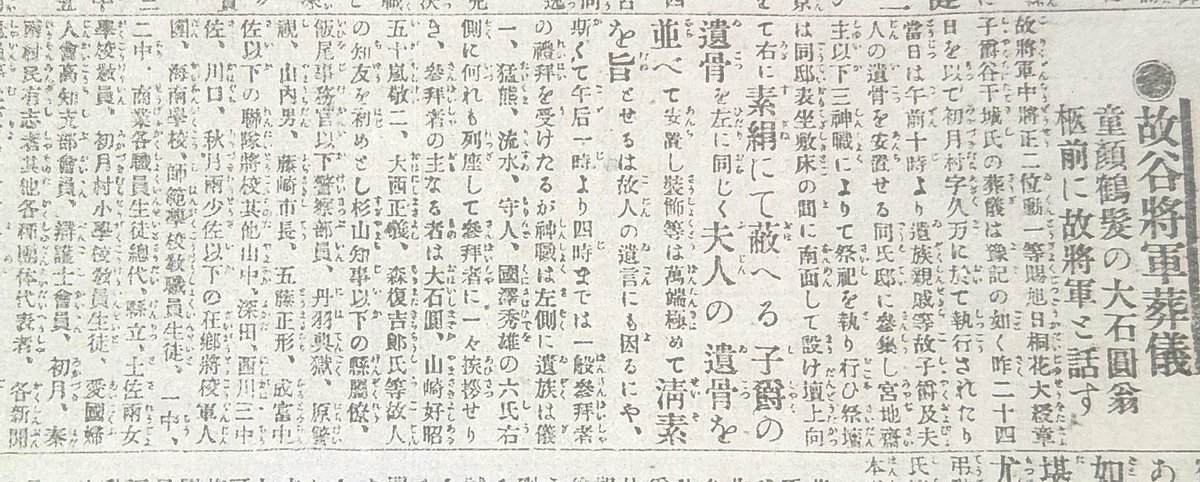 故谷將軍葬儀
童顏鶴髮の大石圓翁
柩前に故將軍と話す
故將軍中將正二位勳一等賜旭日桐花大綬章
子爵谷干城氏の葬儀は豫記の如く昨二十四
日を以て初月村字久万に於て執行されたり
當日は午前十時より遺族親戚等故子爵及夫
人の遺骨を安置せる同氏邸に參集し宮地齋
主以下三神職によりて祭祀を執り行ひ祭壇
は同邸表坐敷床の間に南面して設け壇上向
て右に素絹にて蔽へる子爵の
遺骨を左に同じく夫人の遺骨を
並べて安置し裝飾等は萬端極めて淸素
を旨とせるは故人の遺言にも因るにや、
斯くて午后一時より四時までは一般參拜者
の禮拜を受けたるが神職は左側に遺族は儀
一、猛熊、流水、守人、國澤秀雄の六氏右
側に何れも列座して參拜者に一々挨拶せり
き、參拜者の主なる者は大石圓、山崎好昭
五十嵐敬二、大西正義、森復吉郞氏等故人
の知友を初めとし杉山知事以下の縣廳僚、
飯尾事務官以下警察部員、丹羽典獄、原警
視、山內男、藤崎市長、五藤正形、成富中
佐以下の聯隊將校其他山中、深田、西川三中
佐、川口、秋月兩少佐以下の在鄕將校軍人
團、海南學校、師範學校敎職員生徒、一中、
二中、商業各職員生徒總代、縣立、土佐兩女
學校敎員、初月村小學校敎員生徒、愛國婦
人會高知支部會員、辯護士會員、初月、秦
兩村民有志者其他各種團体代表者、各新聞
あ
如
堪
尤
弔
氏
本